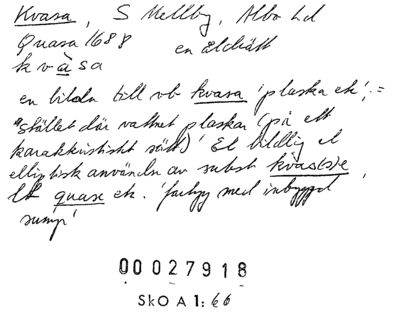 Kvasa, S Mellby, Albo hd
Quasa 1688 en åldrätt
kvàsa
en bildn till vb kvasa 'plaska ek', =
"stället där vattnet plaskar (på ett
karakteristiskt sätt)' El bildlig el
elliptisk användn av subst kvas(s)e
lt quase ek. 'fartyg med inbyggd
sump'
00027918
SkO A 1: 66